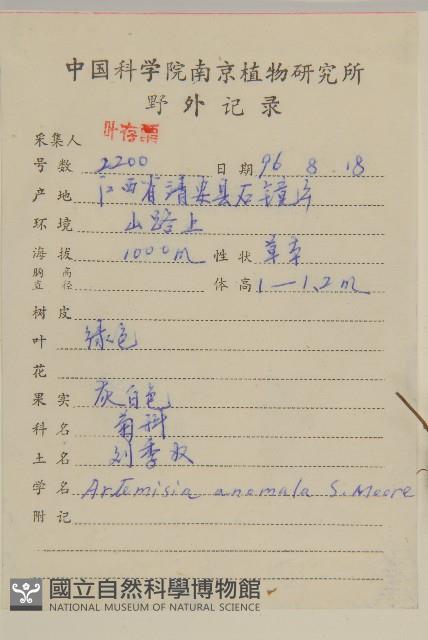 中国科学院南京植物研究所
野外记录
采集人 叶存粟
号数 2200 日期 96 8.18
产地 江西省靖安县石镜片
环境 山路上
海拔 1000m 性状 草本
胸高直径 体高 1—1.2m
树皮
叶 绿色
花
果实 灰白色
科名 菊科
土名 刘寄奴
学名 Artemisia anomala S.Moore
附记
國立自然科學博物館
NATIONAL MUSEUM OF NATURAL SCIENCE